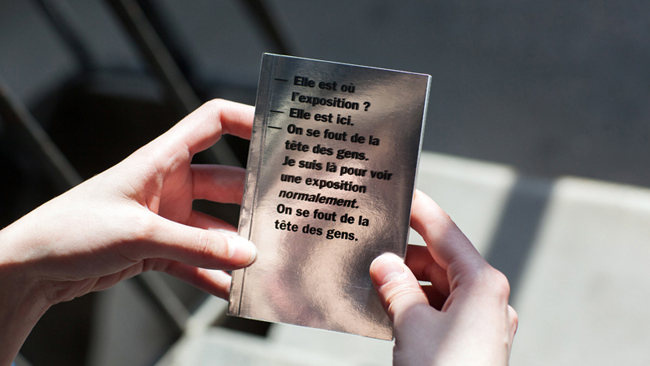 — Elle est où
l'exposition ?
— Elle est ici.
— On se fout de la
tête des gens.
Je suis là pour voir
une exposition
normalement.
On se fout de la
tête des gens.